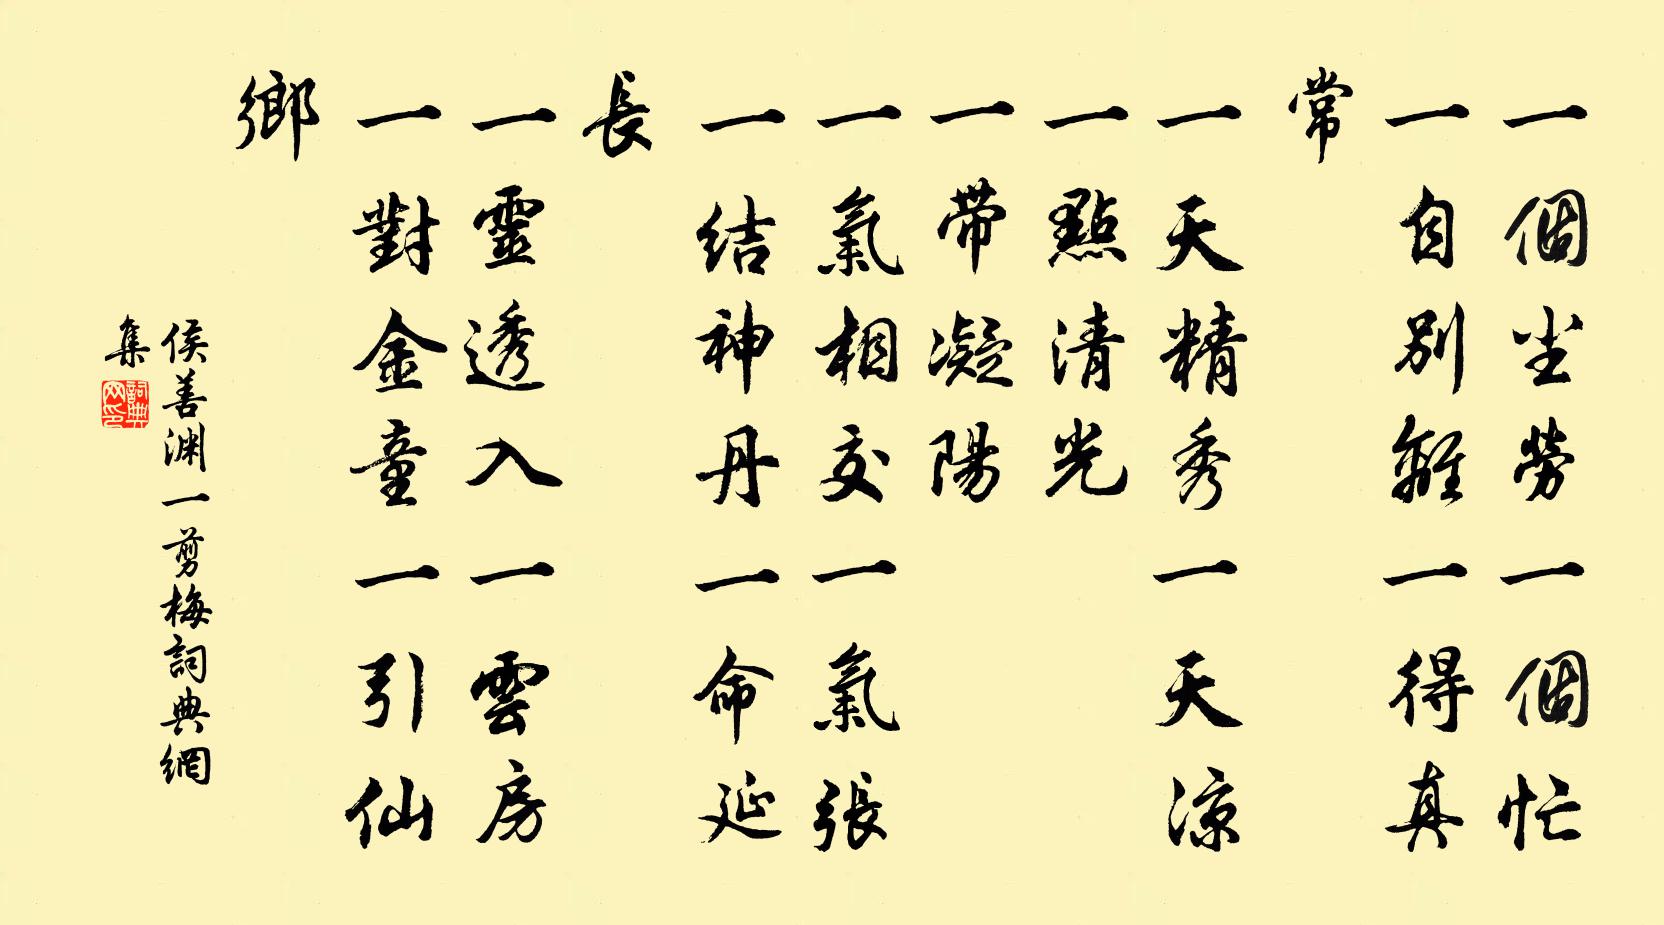 一個坐勞一個忙
一自別離一得真
常
一天精秀一天凉
一點清光
一带凝陽
一氣相交一氣張
一结神丹一命延
長
一靈透入一雲房
一對金童一引仙
鄉
侯善渊一剪梅詞典網
集
詞典
网印